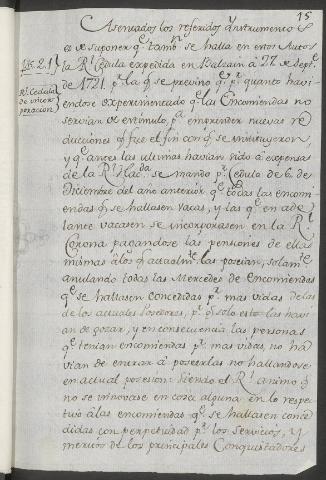 15
Asentados los referidos Ynstrumentos
es de suponer q.e tamb.n se halla en estos Autos
la R.l Cedula expedida en Balsain à 27. de Sept.e
de 1721. p.r la q.e se previno q.e p.r quanto havi-
endose experimentado q.e las Encomiendas no
servian de estimulo p.a emprender nuevas re-
ducciones q.e fue el fin con q.e se instituyeron,
y q.e antes las ultimas havian sido à expensas
de la R.l Haz.da se mandó p.r Cedula de 6. de
Diciembre del año anterior q.e todas las encom-
iendas q.e se hallasen vacas, y las q.e en ade-
lante vacasen se incorporasen en la R.l
Corona pagandose las pensiones de ellas
mismas à los q.e actualm.te las poseian, solam.te
anulando todas las Mercedes de Encomiendas
q.e se hallasen concedidas p.r mas vidas de las
de los actuales Posedores, p.r q.e solo estos las havi-
an de gozar, y en consecuencia las personas
q.e tenian encomiendas p.r mas vidas, no ha-
vian de entrar à poseerlas no hallandose
en actual posesion: siendo el R.l animo q.e
no se innovase en cosa alguna en lo respec-
tivo à las encomiendas q.e se hallasen conce-
didas con perpetuidad p.r los servicios, y
meritos de los principales Conquistadores
R.l Cedula
de yncor-
poracion